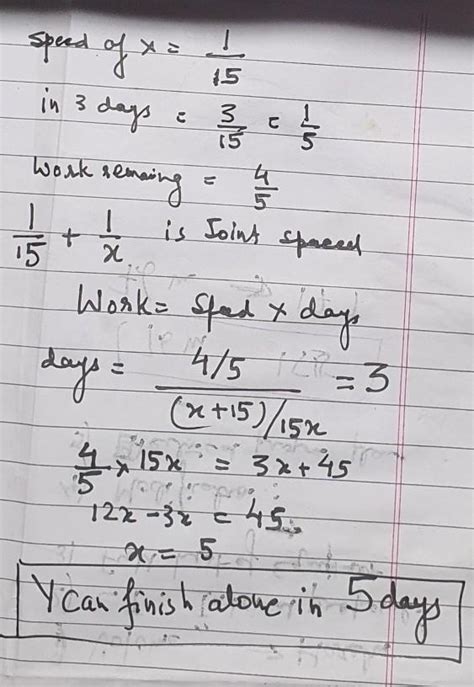 speed of x = 1/15
in 3 days = 3/15 = 1/5
Work remaing = 4/5
1/15 + 1/x is Joint speed
Work = Sped x days
days = 4/5 / (x+15)/15x = 3
4/5 x 15x = 3x + 45
12x - 3x = 45
x = 5
Y can finish alone in 5 days